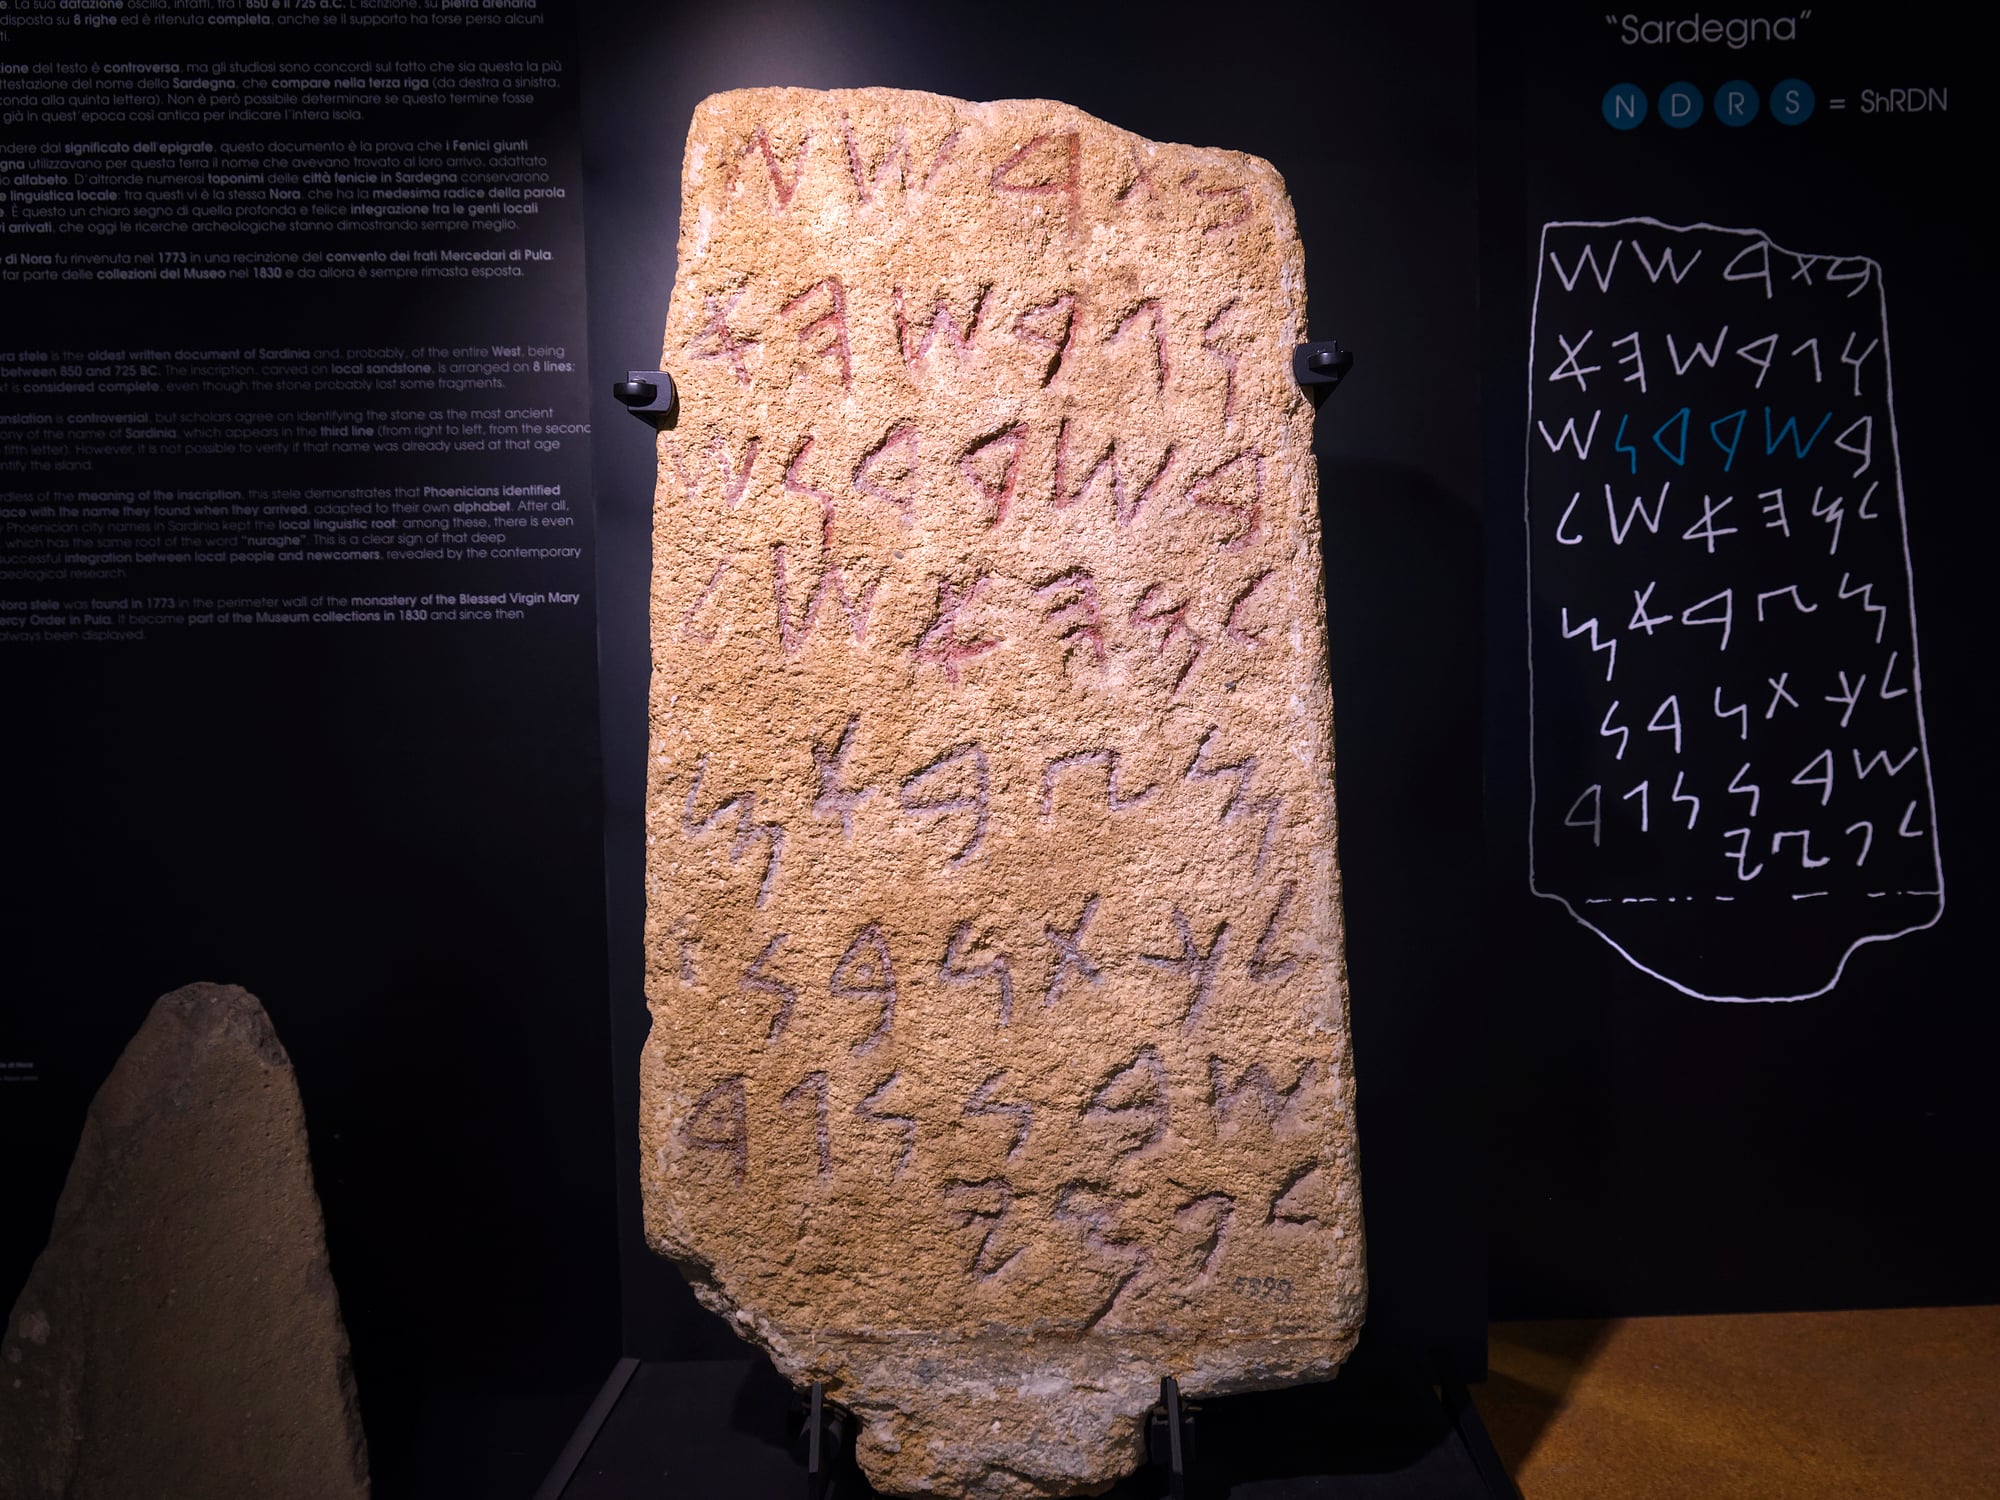 . La sua datazione oscilla, infatti, tra l'850 e il 725 a.C. L'iscrizione, su pietra arenaria
disposta su 8 righe ed è ritenuta completa, anche se il supporto ha forse perso alcuni
ti.
ione del testo è controversa, ma gli studiosi sono concordi sul fatto che sia questa la più
ttestazione del nome della Sardegna, che compare nella terza riga (da destra a sinistra,
conda alla quinta lettera). Non è però possibile determinare se questo termine fosse
già in quest'epoca così antica per indicare l'intera isola.
ndere dal significato dell'epigrafe, questo documento è la prova che i Fenici giunti
gna utilizzavano per questa terra il nome che avevano trovato al loro arrivo, adattato
io alfabeto. D'altronde numerosi toponimi delle città fenicie in Sardegna conservarono
e linguistica locale: tra questi vi è la stessa Nora, che ha la medesima radice della parola
. È questo un chiaro segno di quella profonda e felice integrazione tra le genti locali
vi arrivati, che oggi le ricerche archeologiche stanno dimostrando sempre meglio.
di Nora fu rinvenuta nel 1773 in una recinzione del convento dei frati Mercedari di Pula.
far parte delle collezioni del Museo nel 1830 e da allora è sempre rimasta esposta.
ra stele is the oldest written document of Sardinia and, probably, of the entire West, being
between 850 and 725 BC. The inscription, carved on local sandstone, is arranged on 8 lines;
xt is considered complete, even though the stone probably lost some fragments.
anslation is controversial, but scholars agree on identifying the stone as the most ancient
ony of the name of Sardinia, which appears in the third line (from right to left, from the second
fifth letter). However, it is not possible to verify if that name was already used at that age
ntify the island.
rdless of the meaning of the inscription, this stele demonstrates that Phoenicians identified
lace with the name they found when they arrived, adapted to their own alphabet. After all,
Phoenician city names in Sardinia kept the local linguistic root: among these, there is even
, which has the same root of the word "nuraghe". This is a clear sign of that deep
successful integration between local people and newcomers, revealed by the contemporary
aeological research.
Nora stele was found in 1773 in the perimeter wall of the monastery of the Blessed Virgin Mary
ercy Order in Pula. It became part of the Museum collections in 1830 and since then
always been displayed.
𐤁𐤕𐤓𐤔𐤔
𐤅𐤂𐤓𐤔𐤄𐤀
𐤁𐤔𐤓𐤃𐤍𐤔
𐤋𐤌𐤄𐤀𐤔𐤋
𐤌𐤑𐤁𐤀𐤌
𐤋𐤊𐤕𐤍𐤁𐤍
𐤔𐤁𐤍𐤍𐤂𐤓
𐤋𐤐𐤌𐤉
5998
"Sardegna"
N D R S = ShRDN
𐤁𐤕𐤓𐤔𐤔
𐤅𐤂𐤓𐤔𐤄𐤀
𐤁𐤔𐤓𐤃𐤍𐤔
𐤋𐤌𐤄𐤀𐤔𐤋
𐤌𐤑𐤁𐤀𐤌
𐤋𐤊𐤕𐤍𐤁𐤍
𐤔𐤁𐤍𐤍𐤂𐤓
𐤋𐤐𐤌𐤉